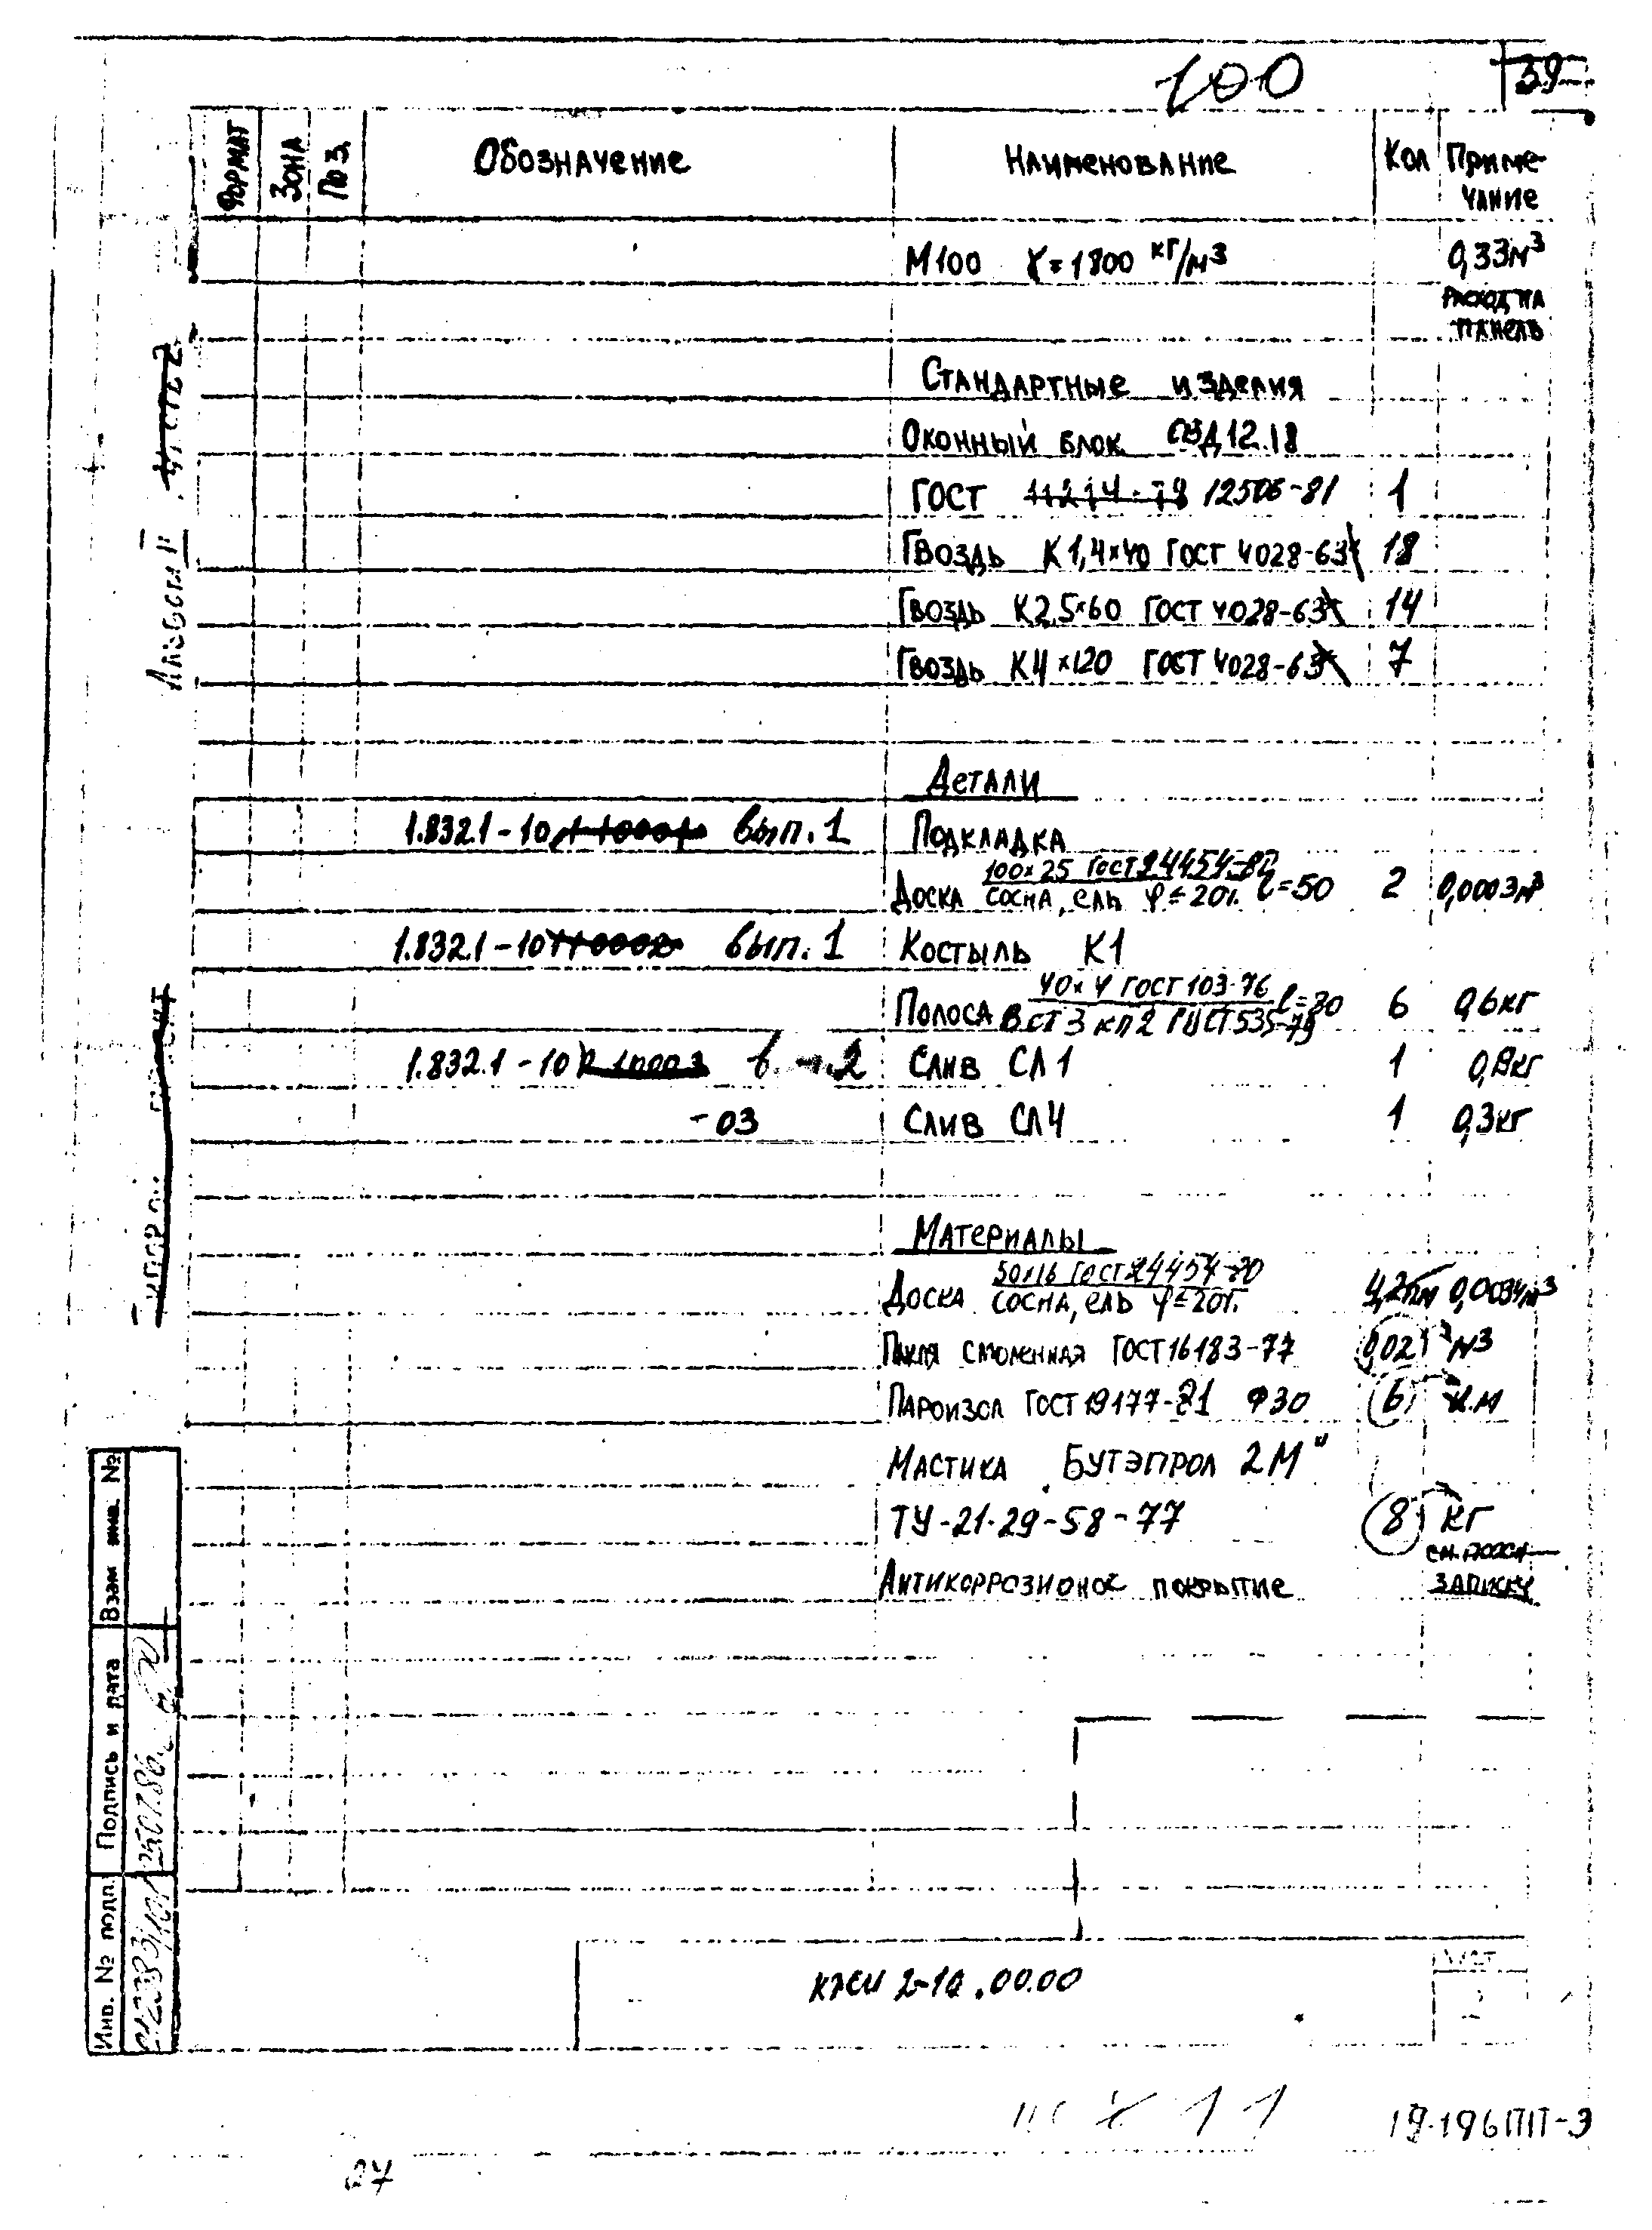 100
39
Формат Зона Поз. Обозначение Наименование Кол Приме-
чание
М100 γ=1800 кг/м3 0,33м3
расход на
панель
Стандартные изделия
Оконный блок ОВД12.18
ГОСТ 11214-78 12506-81 1
Гвоздь К1,4×40 ГОСТ 4028-63 18
Гвоздь К2,5×60 ГОСТ 4028-63 14
Гвоздь К4×120 ГОСТ 4028-63 7
Детали
1.832.1-10 вып.1 Подкладка
Доска 100×25 ГОСТ 24454-80 l=50 2 0,0003м3
сосна, ель φ=20%
1.832.1-10 вып.1 Костыль К1
Полоса 40×4 ГОСТ 103-76 l=80 6 0,6кг
В СТ 3 кп2 ГОСТ 535-79
1.832.1-10 2 Слив СЛ1 1 0,8кг
-03 Слив СЛ4 1 0,3кг
Материалы
Доска 50×16 ГОСТ 24454-80 4,2пм 0,0034м3
сосна, ель φ=20%
Пакля смоленная ГОСТ 16183-77 0,021 м3
Пароизол ГОСТ 19177-81 Ф30 6 п.м
Мастика Бутэпрол 2М"
ТУ-21-29-58-77 8 кг
Антикоррозионое покрытие
см. поясн
записку
Альбом II
Взам инв. №
Подпись и дата
25.07.86
Инв. № подл.
2-10.00.00
Лист
19-196ПП-3
27